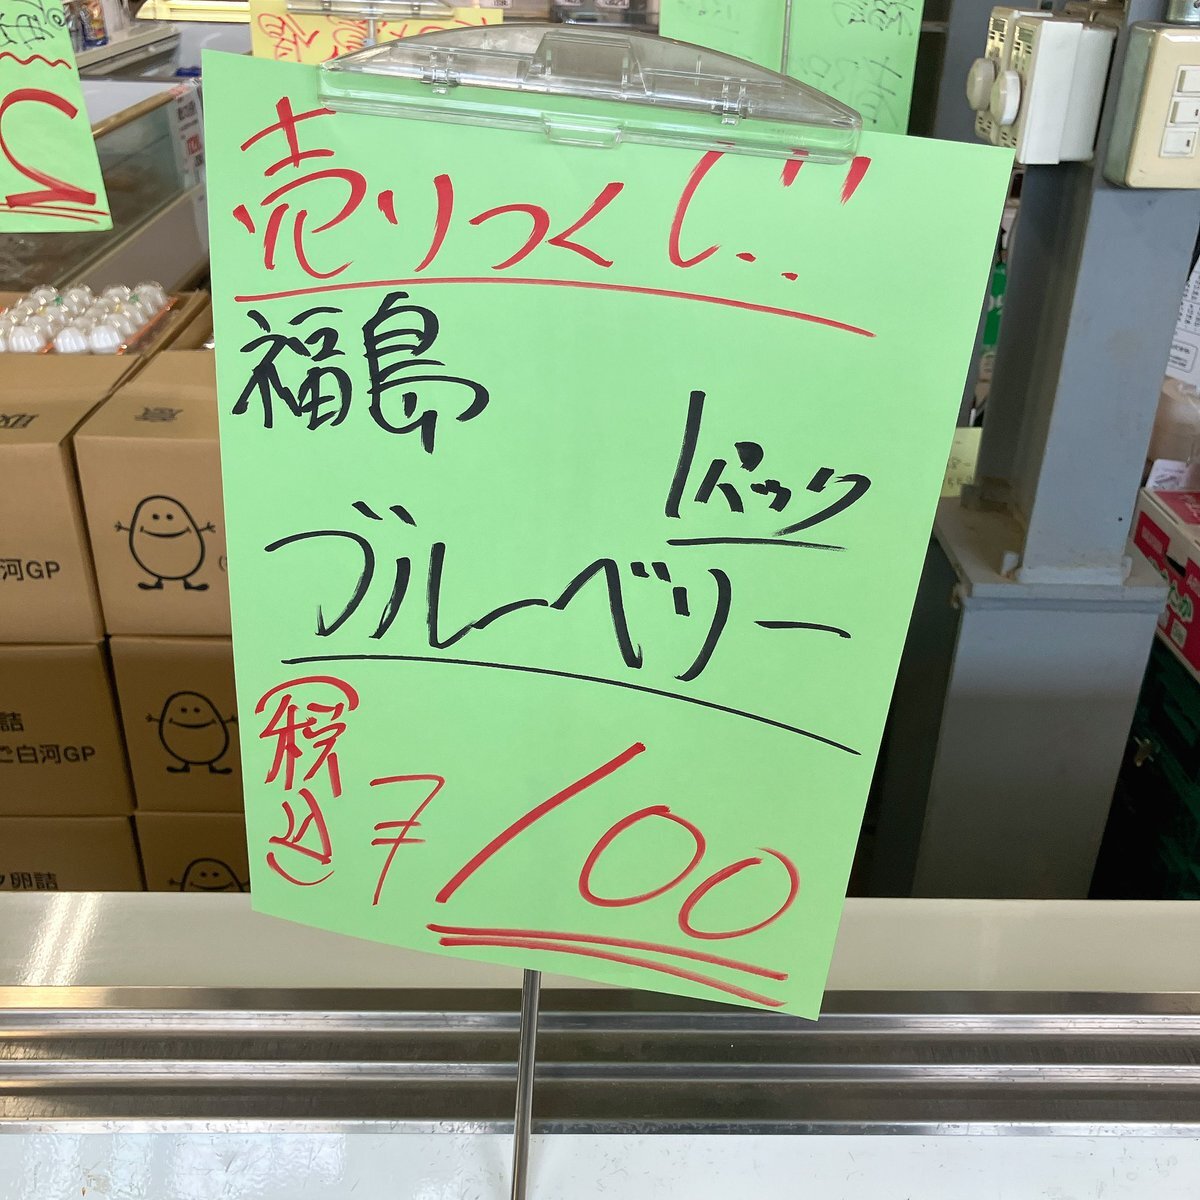 売りつくし!!
福島
1パック
ブルーベリー
(税込)
¥100
河GP
詰
ご白河GP
卵詰